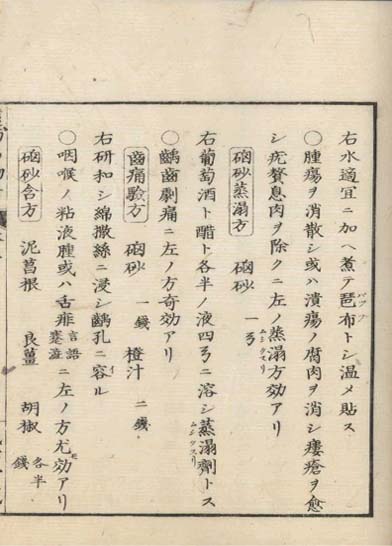 右水適宜ニ加ヘ煮テ琶布トシ温メ貼ス
○腫瘍ヲ消散シ或ハ潰瘍ノ腐肉ヲ消シ瘻瘡ヲ愈
シ疣贅息肉ヲ除クニ左ノ蒸溻方効アリ
硇砂蒸溻方 硇砂 一ヲ
右葡萄酒ト醋ト各半ノ液四ヲニ溶シ蒸溻劑トス
○齲齒劇痛ニ左ノ方奇効アリ
齒痛驗方 硇砂 一錢 橙汁 二錢
右研和シ綿撒絲ニ浸シ齲孔ニ容ル
○咽喉ノ粘液腫或ハ舌痱言語蹇澁ニ左ノ方尤効アリ
硇砂含方 泥菖根 良薑 胡椒 各半錢